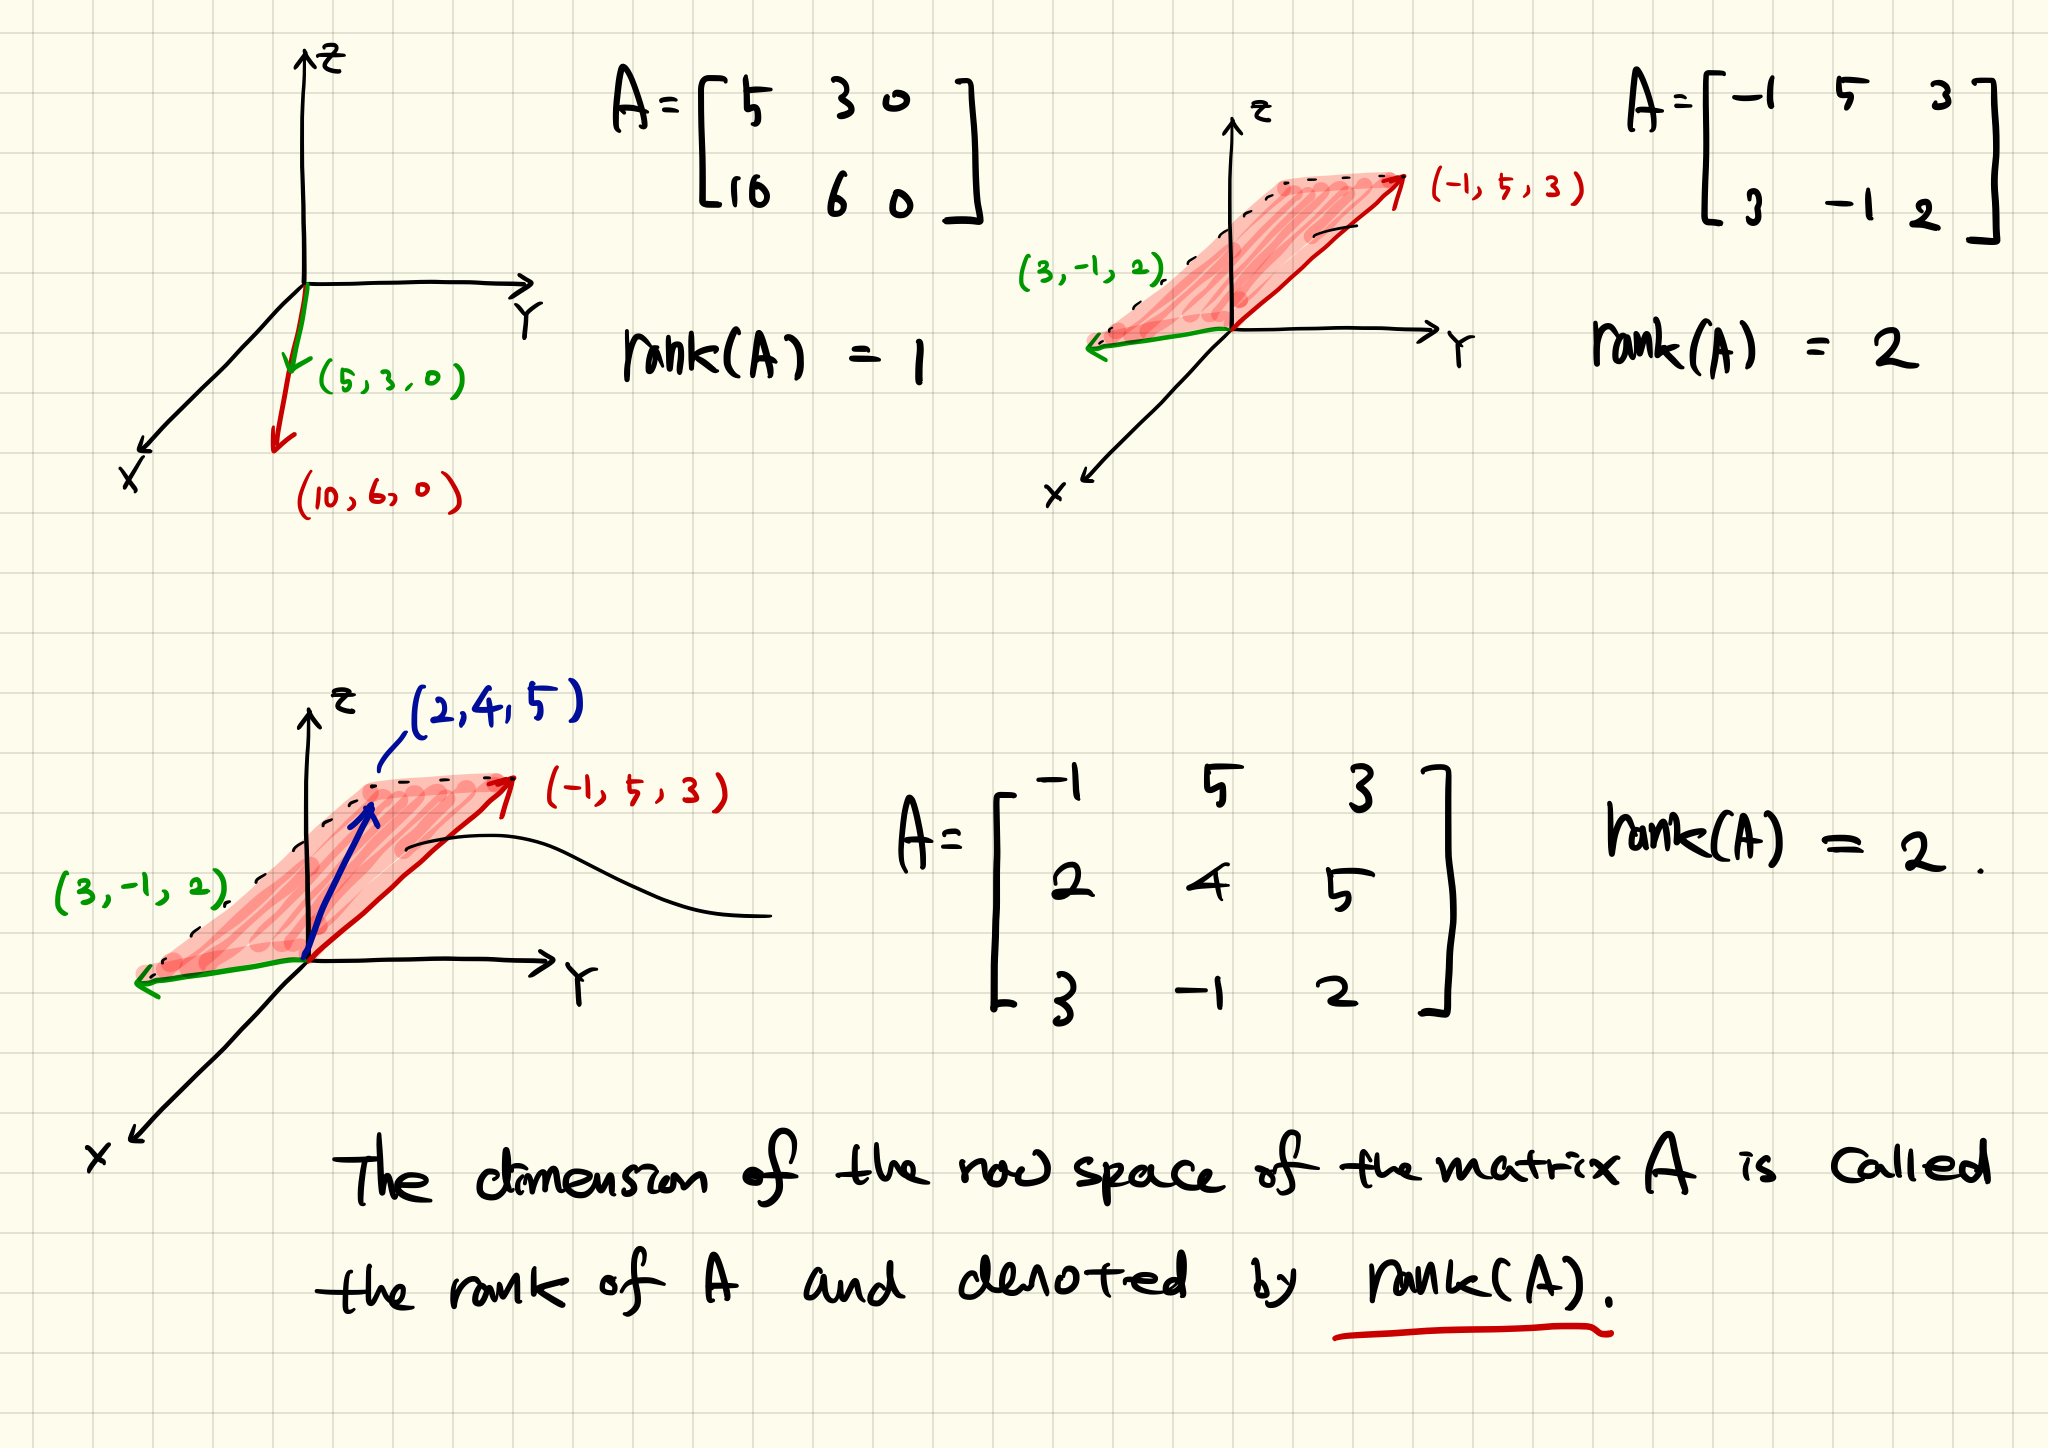 Z
A = [ 5 3 0
10 6 0 ]
Y
X
(5, 3, 0)
(10, 6, 0)
rank(A) = 1
z
A = [ -1 5 3
3 -1 2 ]
(-1, 5, 3)
(3, -1, 2)
Y
X
rank(A) = 2
z
(2, 4, 5)
(-1, 5, 3)
(3, -1, 2)
Y
X
A = [ -1 5 3
2 4 5
3 -1 2 ]
rank(A) = 2.
The dimension of the row space of the matrix A is called
the rank of A and denoted by rank(A).